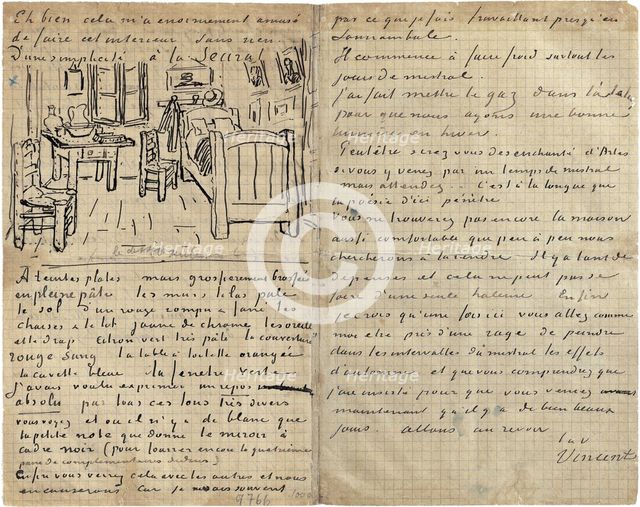 Eh bien cela m'a enormement amusé
de faire cet interieur sans rien.
D'une simplicité à la Seurat
A teintes plates mais grossierement brossées
en pleine pâte les murs lilas pale
le sol d'un rouge rompu & fané les
chaises & le lit jaune de chrome les oreillers
et le drap citron vert très pâle la couverture
rouge sang la table à toilette orangée
la cuvette bleue la fenetre verte
J'avais voulu exprimer un repos
absolu par tous ces tons très divers
vous voyez et ou il n'y a de blanc que
la petite note que donne le miroir à
cadre noir (pour fourrer encore la quatrième
paire de complementaires dedans)
Enfin vous verrez cela avec les autres et nous
en causerons car je ne sais souvent
9766
par ce que je fais travaillant presqu'en
somnambule.
Il commence à faire froid surtout les
jours de mistral.
J'ai fait mettre le gaz dans l'atelier
pour que nous ayons une bonne
lumière en hiver.
Peutêtre serez vous desenchanté d'Arles
si vous y venez par un temps de mistral
mais attendez... C'est à la longue que
la poésie d'ici pénètre
Vous ne trouverez pas encore la maison
aussi confortable que peu à peu nous
chercherons à la rendre Il y a tant de
depenses et cela ne peut pas se
faire d'une seule haleine Enfin
je crois qu'une fois ici vous allez comme
moi etre pris d'une rage de peindre
dans les intervalles du mistral les effets
d'automne et que vous comprendrez que
j'ai insisté pour que vous veniez
maintenant qu'il y a de bien beaux
jours. allons au revoir
t. à v.
Vincent
Heritage
Heritage
Heritage
Heritage
Heritage
Heritage